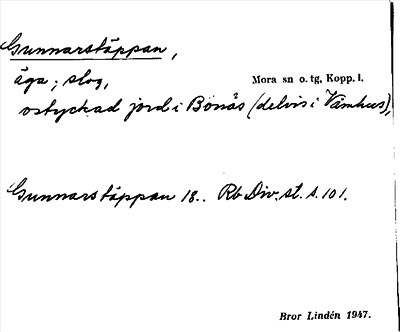 Gunnarstäppan,
äga; slog,
Mora sn o. tg, Kopp. l.
ostyckad jord i Bonäs (delvis i Våmhus),
Gunnarstäppan 18.. Rb Div. st. s. 101.
Bror Lindén 1947.